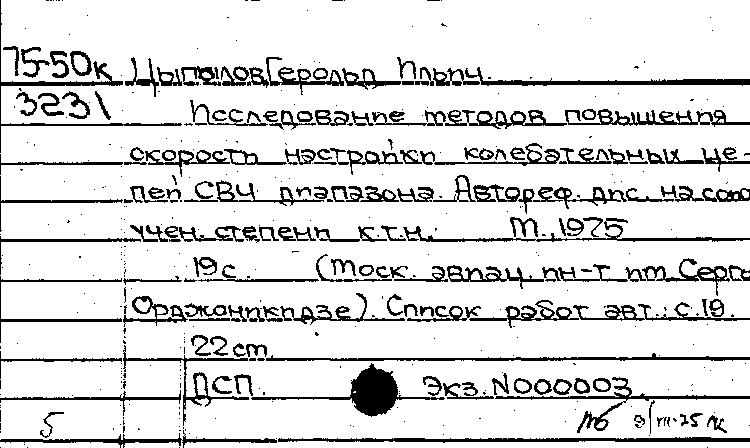 75-50к Цыпылов Герольд Ильич.
3231 Исследование методов повышения
скорости настройки колебательных це-
пей СВЧ диапазона. Автореф. дис. на соиск.
учен. степени к.т.н. М., 1975
19 с. (Моск. авиац. ин-т им Серго
Орджоникидзе). Список работ авт.: с.19.
22 cm.
ДСП. Экз. N000003.
5